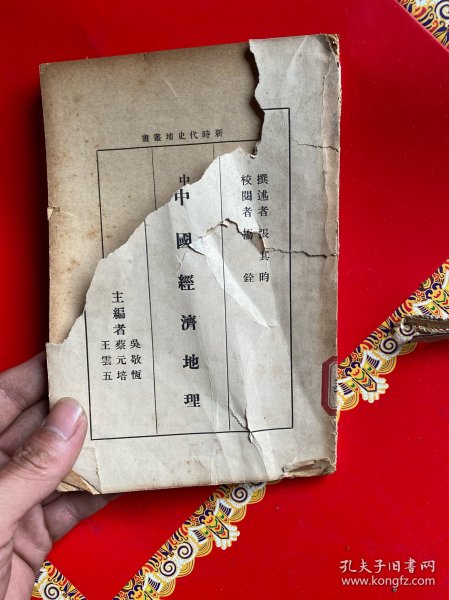 新時代史地叢書
撰述者 張其昀
校閱者 楊銓
中國經濟地理
主編者
吳敬恆
蔡元培
王雲五
孔夫子旧书网
www.kongfz.com